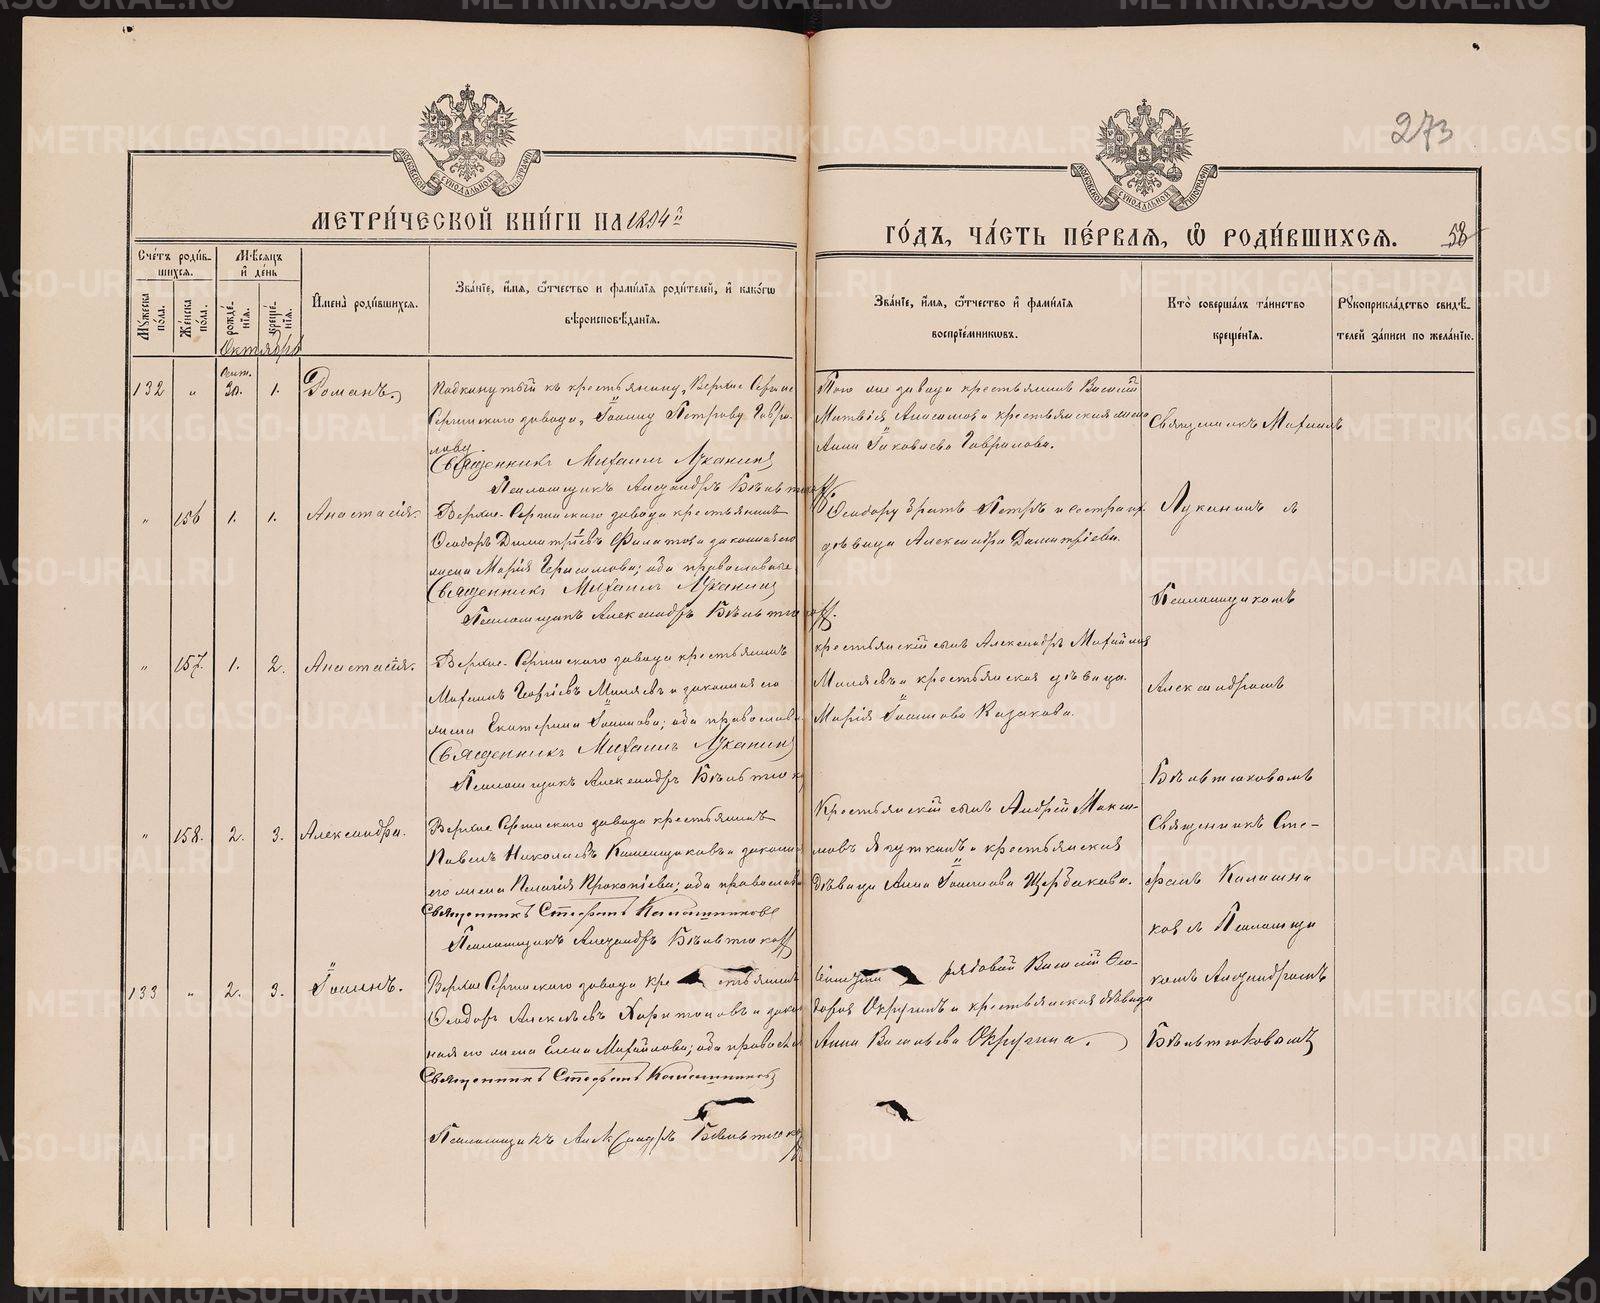 273
МОСКОВСКОЙ СѴНОДАЛЬНОЙ ТИПОГРАФІИ
МОСКОВСКОЙ СѴНОДАЛЬНОЙ ТИПОГРАФІИ
МЕТРИ́ЧЕСКОЙ КНИ́ГИ НА 1894 й
ГО́ДЪ, ЧА́СТЬ ПЕ́РВАЯ, Ѽ РОДИ́ВШИХСЯ. 58
Сче́тъ роди́в-
шихся.
Мѣ́сяцъ
и де́нь
Му́жеска по́ла.
Же́нска по́ла.
рожде́-
нїя.
креще́-
нїя.
Имена̀ роди́вшихся.
Зва́нїе, и́мя, ѻ҆́тчество и фами́лїя роди́телей, и како́гѡ
вѣроисповѣ́данїя.
Зва́нїе, и́мя, ѻ҆́тчество и фами́лїя
воспрїе́мникѡвъ.
Кто̀ соверша́лъ та́инство
креще́нїя.
Рꙋкоприкла́дство свидѣ́-
телей за́писи по жела́нїю.
Октябрь
132 " Сент. 30. 1. Романъ,
Подкинутый къ крестьянину, Верхне Серге
Сергинскаго завода, Іоанну Петрову Гаври-
лову.
Священникъ Михаилъ Луканинъ
Псаломщикъ Александръ
Того же завода крестьянинъ Василій
Матвіевъ и крестьянская жена
Анна Іаковлева Гаврилова.
Священникъ Михаилъ
" 156 1. 1. Анастасія.
Верхне-Сергинскаго завода крестьянинъ
Ѳеодоръ Димитріевъ Филатовъ и законная его
жена Марія Герасимова; оба православные
Священникъ Михаилъ Луканинъ
Псаломщикъ Александръ
Ѳеодору братъ Петръ и сестра их
дѣвица Александра Димитріевы.
Луканинъ съ
Псаломщикомъ
" 157. 1. 2. Анастасія.
Верхне-Сергинскаго завода крестьянинъ
Михаилъ Георгіевъ Миляевъ и законная его
жена Екатерина Іоаннова; оба православн
Священникъ Михаилъ Луканинъ
Псаломщикъ Александръ
крестьянскій сынъ Александръ Михайловъ
Миляевъ и крестьянская дѣвица
Марія Іоаннова Казакова.
Александромъ
" 158. 2. 3. Александра.
Верхне Сергинскаго завода крестьянинъ
Павелъ Николаевъ Каменщиковъ и законная
его жена Пелагія Прокопіева; оба православн
Священникъ Стефанъ Калашниковъ
Псаломщикъ Александръ
Крестьянскій сынъ Андрей Макси-
мовъ и крестьянская
дѣвица Анна Іоаннова Щербакова.
Священникъ Сте-
фанъ Калашни
ковъ съ Псаломщи
133 " 2. 3. Іоаннъ.
Верхне Сергинскаго завода крестьянинъ
Ѳеодоръ Алексѣевъ Харитоновъ и закон
ная его жена Елена Михайлова; оба православ
Священникъ Стефанъ Калашниковъ
Псаломщикъ Александръ
рядовой Василій Ѳео-
доровъ и крестьянская дѣвица
Анна Васильева
комъ Александромъ
METRIKI.GASO-URAL.RU